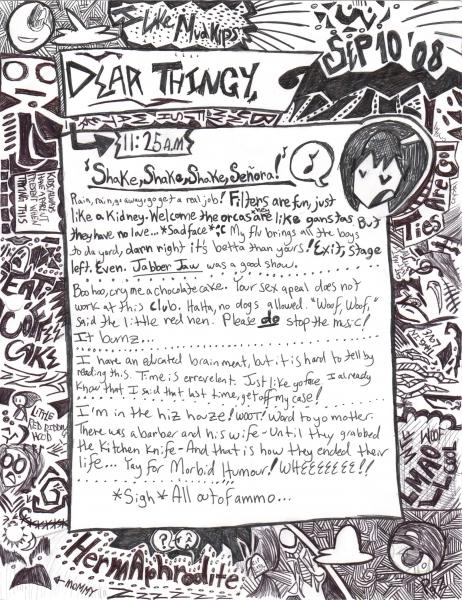 I Like Mudkips!
SEP 10 '08
DEAR THINGY,
11:25 A.M
"Shake, Shake, Shake, Señora!"
Rain, rain, go away, go get a real job! Filters are fun, just
like a Kidney. Welcome the orcas they are like ganstas But
they have no love... *Sadface* :( My fly brings all the boys
to da yard, damn right it's betta than yours! Exit, Stage
left. Even. Jabber Jaw was a good show.
Boo hoo, cry me a chocolate cake. Your sex apeal does not
work at this club. Haha, no dogs allowed. "Woof, Woof,"
said the little red hen. Please do stop the music!
It burnz...
I have an educated brain meat, but it is hard to tell by
reading this. Time is errevelent. Just like yo face, I already
Know that I said that last time, get off my case!
I'm in the hiz houze! WOOT! Word to yo mother.
There was a barber and his wife - Until they grabbed
the Kitchen Knife - And that is how they ended their
life... Yay for Morbid Humour! WHEEEEEEE!!
*Sigh* All outof ammo...
Ties Are Cool
EAT
COFFEE
CAKE
LITTLE
RED RIDING
HOOD
LMAO
COOL
HermAphrodite
MOMMY